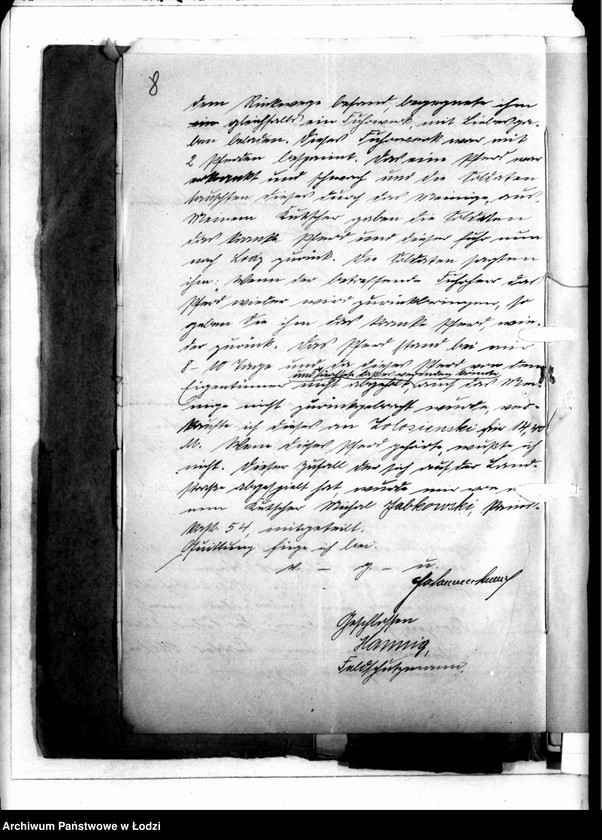 8
dem Rückwege befand, begegnete ihm
ein gleichfalls ein Fuhrwerk, mit Liebesga-
ben beladen. Dieses Fuhrwerk war mit
2 Pferden bespannt. Das eine Pferd war
erkrankt und schwach und die Soldaten
tauschten dieses durch das Meinige aus.
Meinem Kutscher gaben die Soldaten
das kranke Pferd und dieser fuhr nun
nach Lodz zurück. Die Soldaten sagten
ihm: Wenn der betreffende Fuhrherr das
Pferd wieder wird zurückbringen, so
geben Sie ihm das kranke Pferd, wie-
der zurück. Das Pferd stand bei mir
8-10 Tage und, da dieses Pferd von dem
Eigentümer nicht abgeholt, auch das Mei-
nige nicht zurückgebracht wurde, ver-
kaufte ich dieses an Zolosienski für 14,40
M. Wem dieses Pferd gehörte, wußte ich
nicht. Dieser Zufall der sich auf der Land-
straße abgespielt hat, wurde mir von
nem Kutscher Michal Zabkowski,
54, mitgeteilt.
Quittung füge ich bei.
v. - g. - u.
Geschlossen
Hannig,
Feldschutzmann.
Archiwum Państwowe w Łodzi